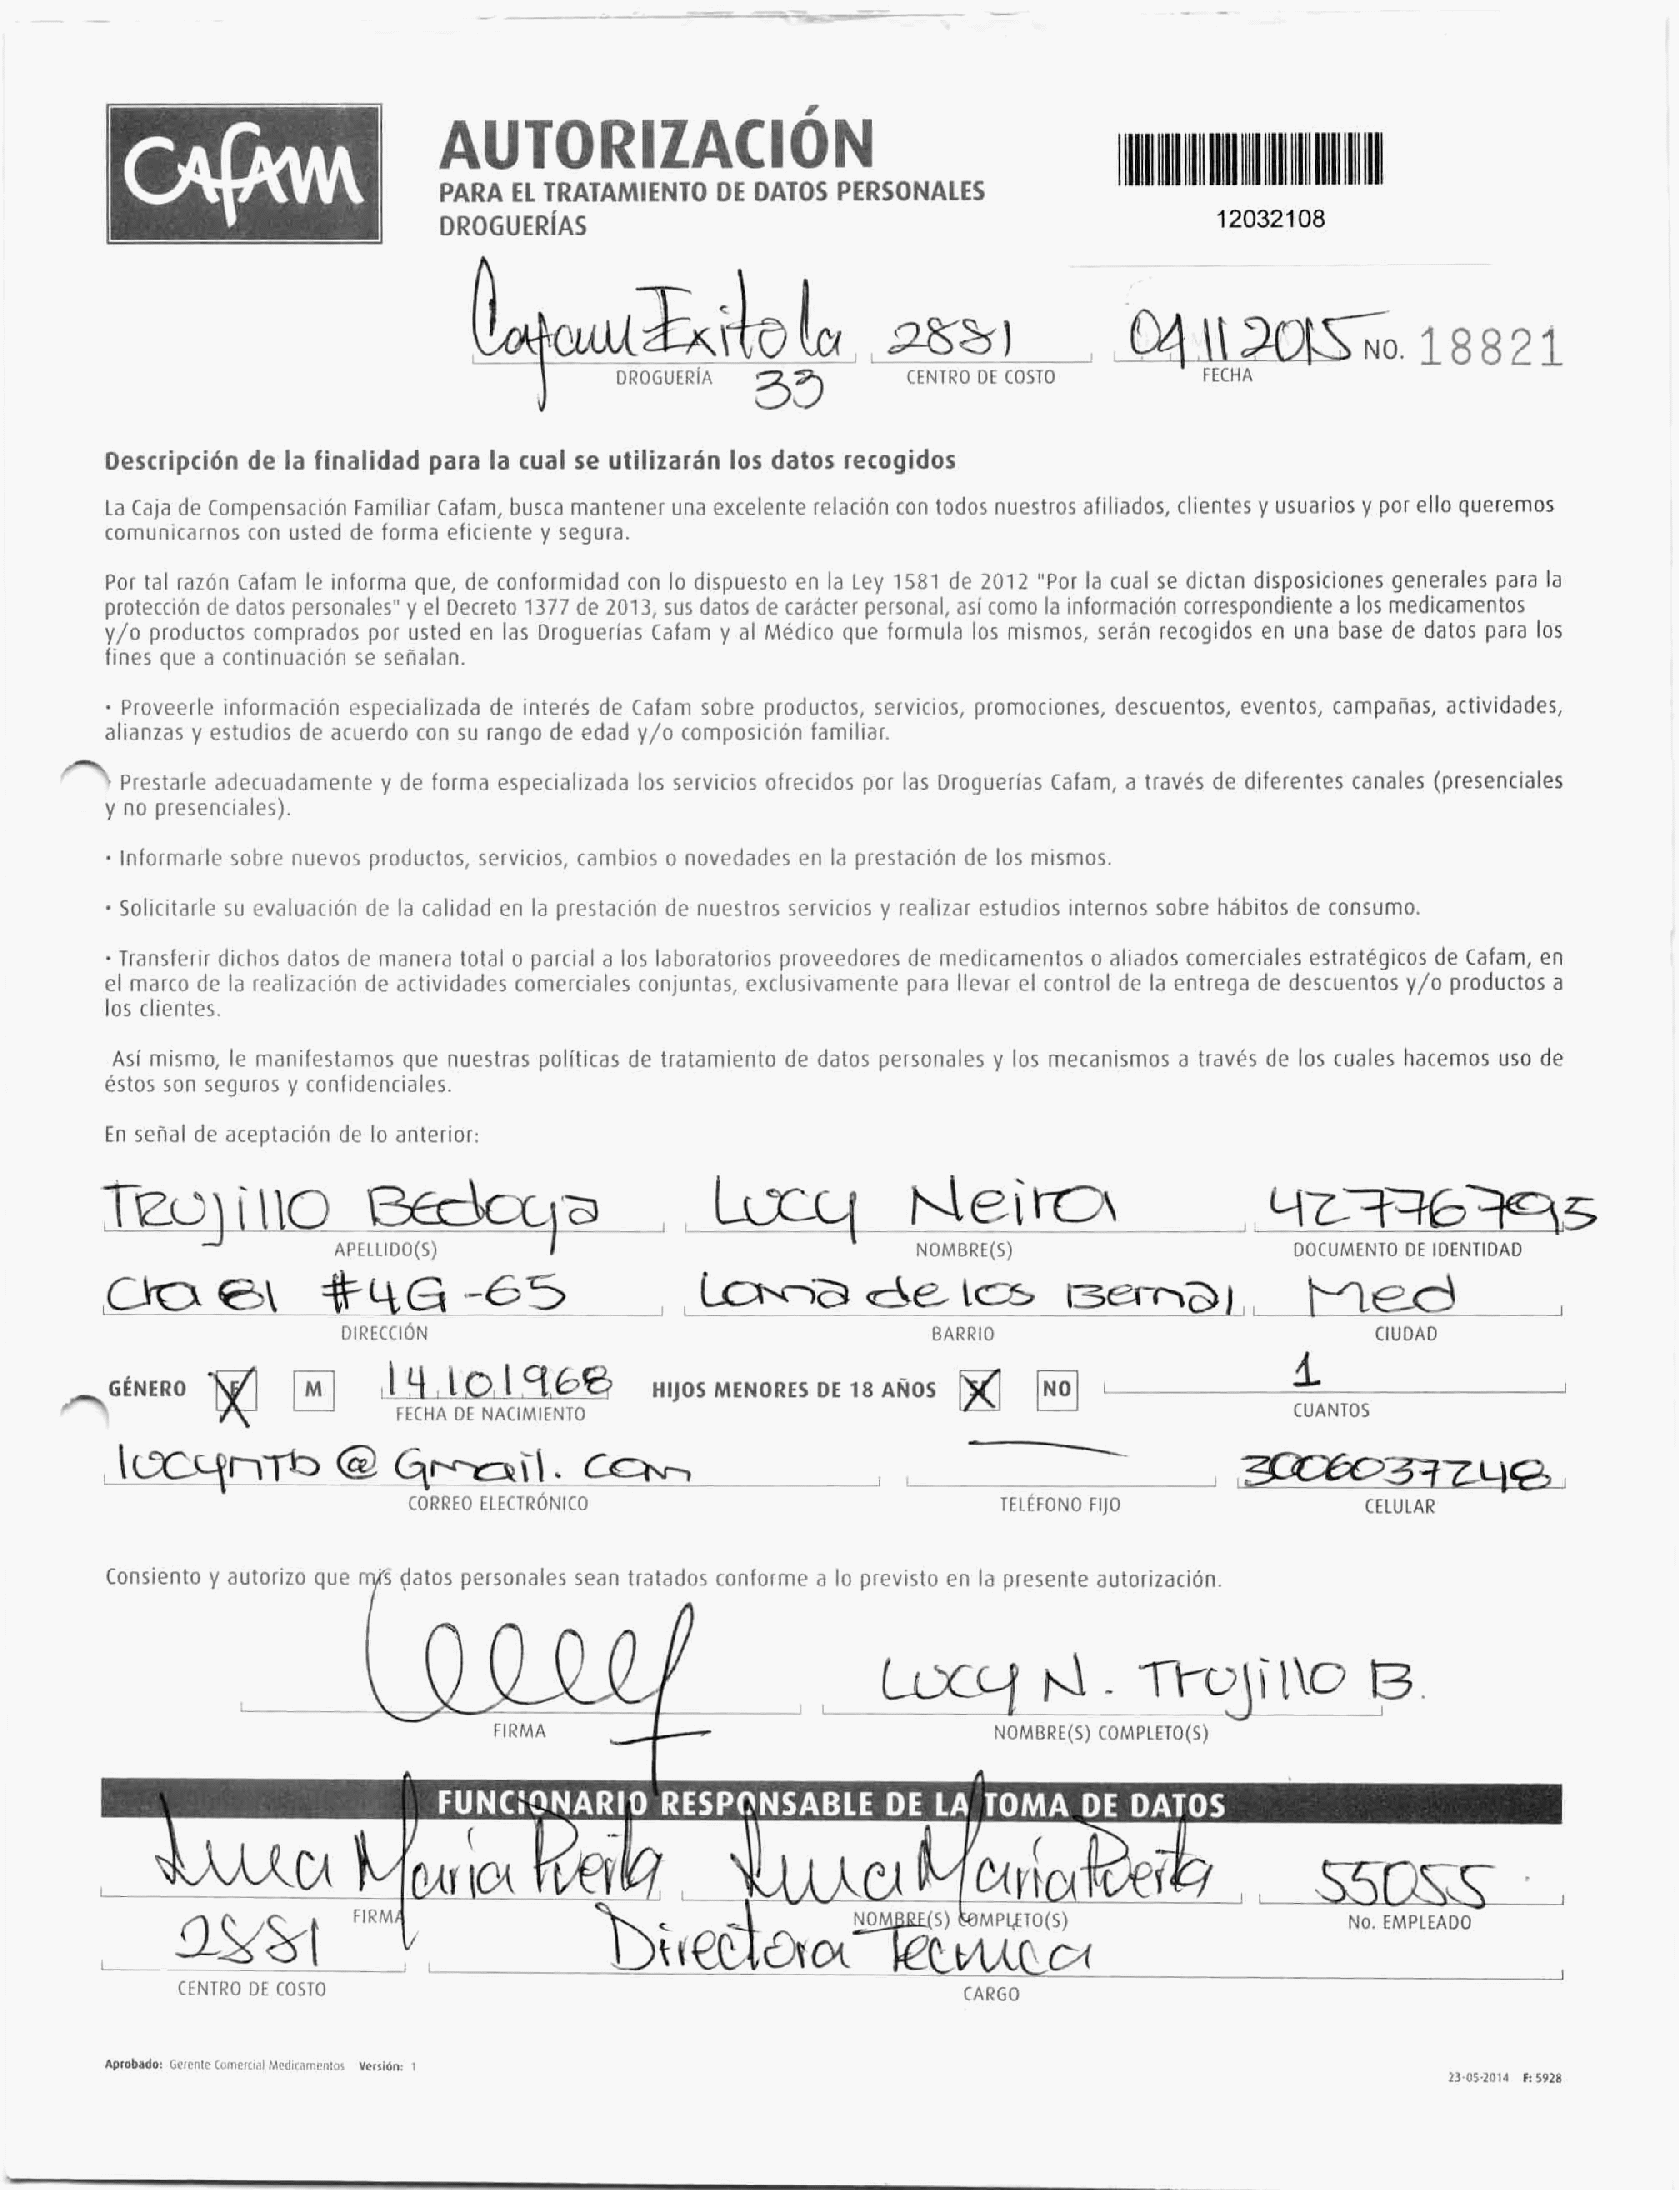 CAfAM
AUTORIZACIÓN
PARA EL TRATAMIENTO DE DATOS PERSONALES
DROGUERÍAS
12032108
Cafam Exito la 33 2881 04 11 2015 NO. 18821
DROGUERÍA CENTRO DE COSTO FECHA
Descripción de la finalidad para la cual se utilizarán los datos recogidos
La Caja de Compensación Familiar Cafam, busca mantener una excelente relación con todos nuestros afiliados, clientes y usuarios y por ello queremos
comunicarnos con usted de forma eficiente y segura.
Por tal razón Cafam le informa que, de conformidad con lo dispuesto en la Ley 1581 de 2012 "Por la cual se dictan disposiciones generales para la
protección de datos personales" y el Decreto 1377 de 2013, sus datos de carácter personal, así como la información correspondiente a los medicamentos
y/o productos comprados por usted en las Droguerías Cafam y al Médico que formula los mismos, serán recogidos en una base de datos para los
fines que a continuación se señalan.
· Proveerle información especializada de interés de Cafam sobre productos, servicios, promociones, descuentos, eventos, campañas, actividades,
alianzas y estudios de acuerdo con su rango de edad y/o composición familiar.
· Prestarle adecuadamente y de forma especializada los servicios ofrecidos por las Droguerías Cafam, a través de diferentes canales (presenciales
y no presenciales).
· Informarle sobre nuevos productos, servicios, cambios o novedades en la prestación de los mismos.
· Solicitarle su evaluación de la calidad en la prestación de nuestros servicios y realizar estudios internos sobre hábitos de consumo.
· Transferir dichos datos de manera total o parcial a los laboratorios proveedores de medicamentos o aliados comerciales estratégicos de Cafam, en
el marco de la realización de actividades comerciales conjuntas, exclusivamente para llevar el control de la entrega de descuentos y/o productos a
los clientes.
Así mismo, le manifestamos que nuestras políticas de tratamiento de datos personales y los mecanismos a través de los cuales hacemos uso de
éstos son seguros y confidenciales.
En señal de aceptación de lo anterior:
Trujillo Bedoya Lucy Neira
APELLIDO(S) NOMBRE(S) DOCUMENTO DE IDENTIDAD
Cra 81 #4G-65 Loma de los Bernal Med
DIRECCIÓN BARRIO CIUDAD
GÉNERO F M 14.10.1968 HIJOS MENORES DE 18 AÑOS NO 1
FECHA DE NACIMIENTO CUANTOS
lucyntb@Gmail.com 3006037248
CORREO ELECTRÓNICO TELÉFONO FIJO CELULAR
Consiento y autorizo que mis datos personales sean tratados conforme a lo previsto en la presente autorización.
Lucy N. Trujillo B.
FIRMA NOMBRE(S) COMPLETO(S)
FUNCIONARIO RESPONSABLE DE LA TOMA DE DATOS
Luca Maria Puerta Luca Maria Puerta 55055
FIRMA NOMBRE(S) COMPLETO(S) No. EMPLEADO
2881 Directora Tecnica
CENTRO DE COSTO CARGO
Aprobado: Gerente Comercial Medicamentos Versión: 1
23-05-2014 F: 5928